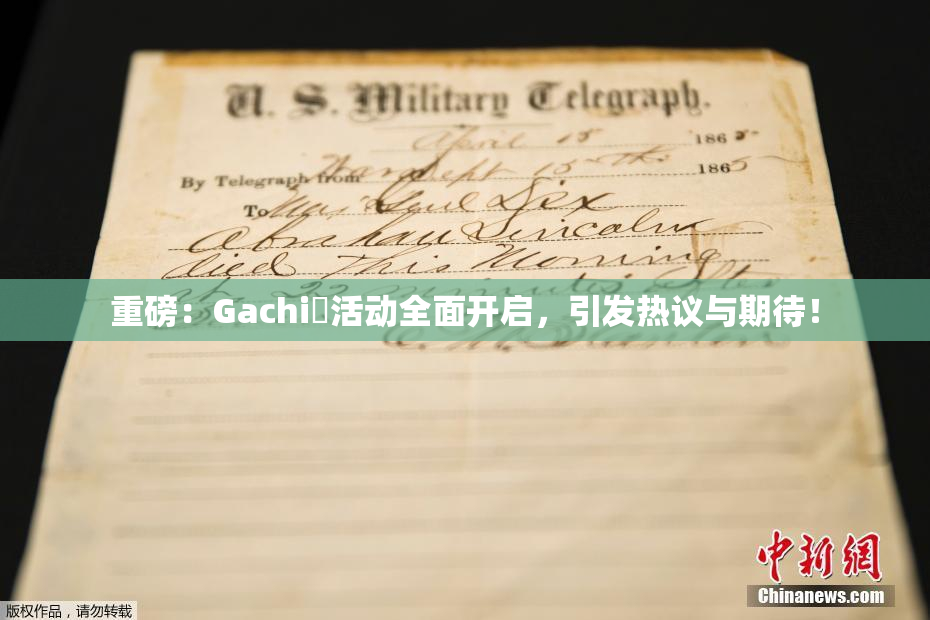 U. S. Military Telegraph.
April 15 1865
By Telegraph from War Dept 15th 1865
To Maj Genl Dix
Abraham Lincoln
died This Morning
at 22 minutes after
重磅：Gachi▯活动全面开启，引发热议与期待！
E. M. Stanton
中新网
Chinanews.com
版权作品，请勿转载